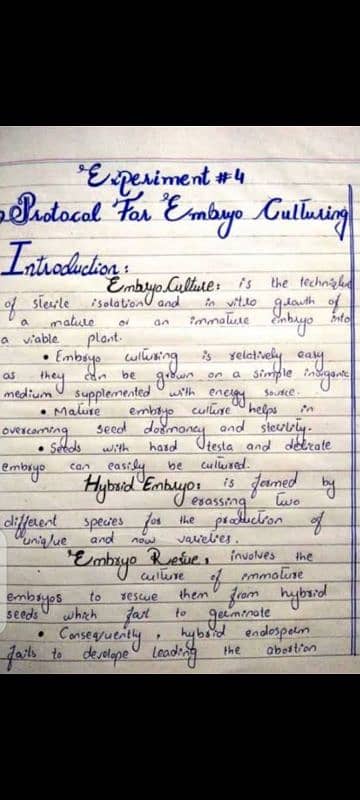 Experiment #4
Protocal For Embryo Culturing
Introduction:
Embryo Culture: is the technique
of sterile isolation and in vitro growth of
a mature or an immature embryo into
a viable plant.
• Embryo culturing is relatively easy
as they can be grown on a simple inorganic
medium supplemented with energy source.
• Mature embryo culture helps in
overcoming seed dormancy and sterility.
• Seeds with hard testa and delicate
embryo can easily be cultured.
Hybrid Embryo: is formed by
crassing two
different species for the production of
uniqlue and now varieties.
Embryo Resue: involves the
culture of immature
embryos to rescue them from hybrid
seeds which fail to germinate
• Consequently, hybrid endosperm
fails to develope leading the abortion